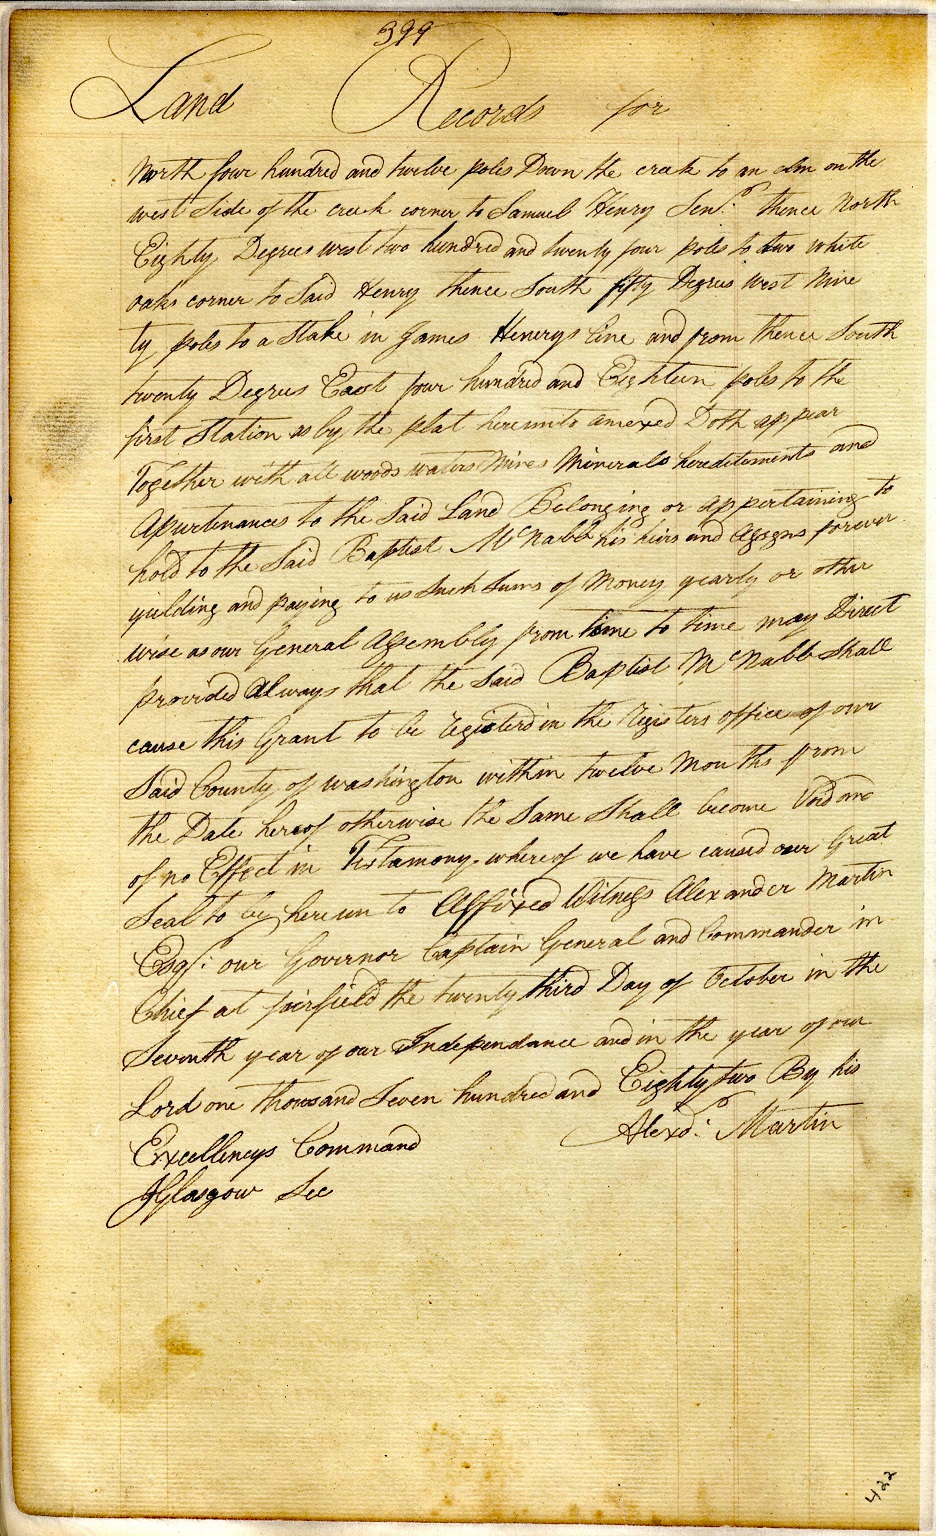 399
Land Records for
North four hundred and twelve poles Down the creek to an elm on the
west Side of the creek corner to Samuel Henry Senr. thence North
Eighty Degrees west two hundred and twenty four poles to two white
oaks corner to Said Henry thence South fifty Degrees West Nine
ty poles to a Stake in James Henerys line and from thence South
twenty Degrees East four hundred and Eighteen poles to the
first Station as by the plat hereunto anexed Doth appear
Together with all woods waters Mines Minerals hereditements and
Apurtenances to the Said Land Belonging or appertaining to
hold to the Said Baptist McNabb his heirs and Assgns forever
yielding and paying to us Such Sums of Money yearly or other
wise as our General Assembly from time to time may Direct
provided Always that the Said Baptist McNabb Shall
cause this Grant to be registerd in the Registers office of our
Said County of washington within twelve Months from
the Date hereof otherwise the Same Shall become Void and
of no Effect in Testamony whereof we have caused our Great
Seal to be hereunto Affixed Witness Alexander Martin
Esqr. our Governor Captain General and Commander in
Chief at fairfield the twenty third Day of October in the
Seventh year of our Independance and in the year of our
Lord one thousand Seven hundred and Eighty two By his
Excellencys Command Alexdr. Martin
JGlasgow Sec
422